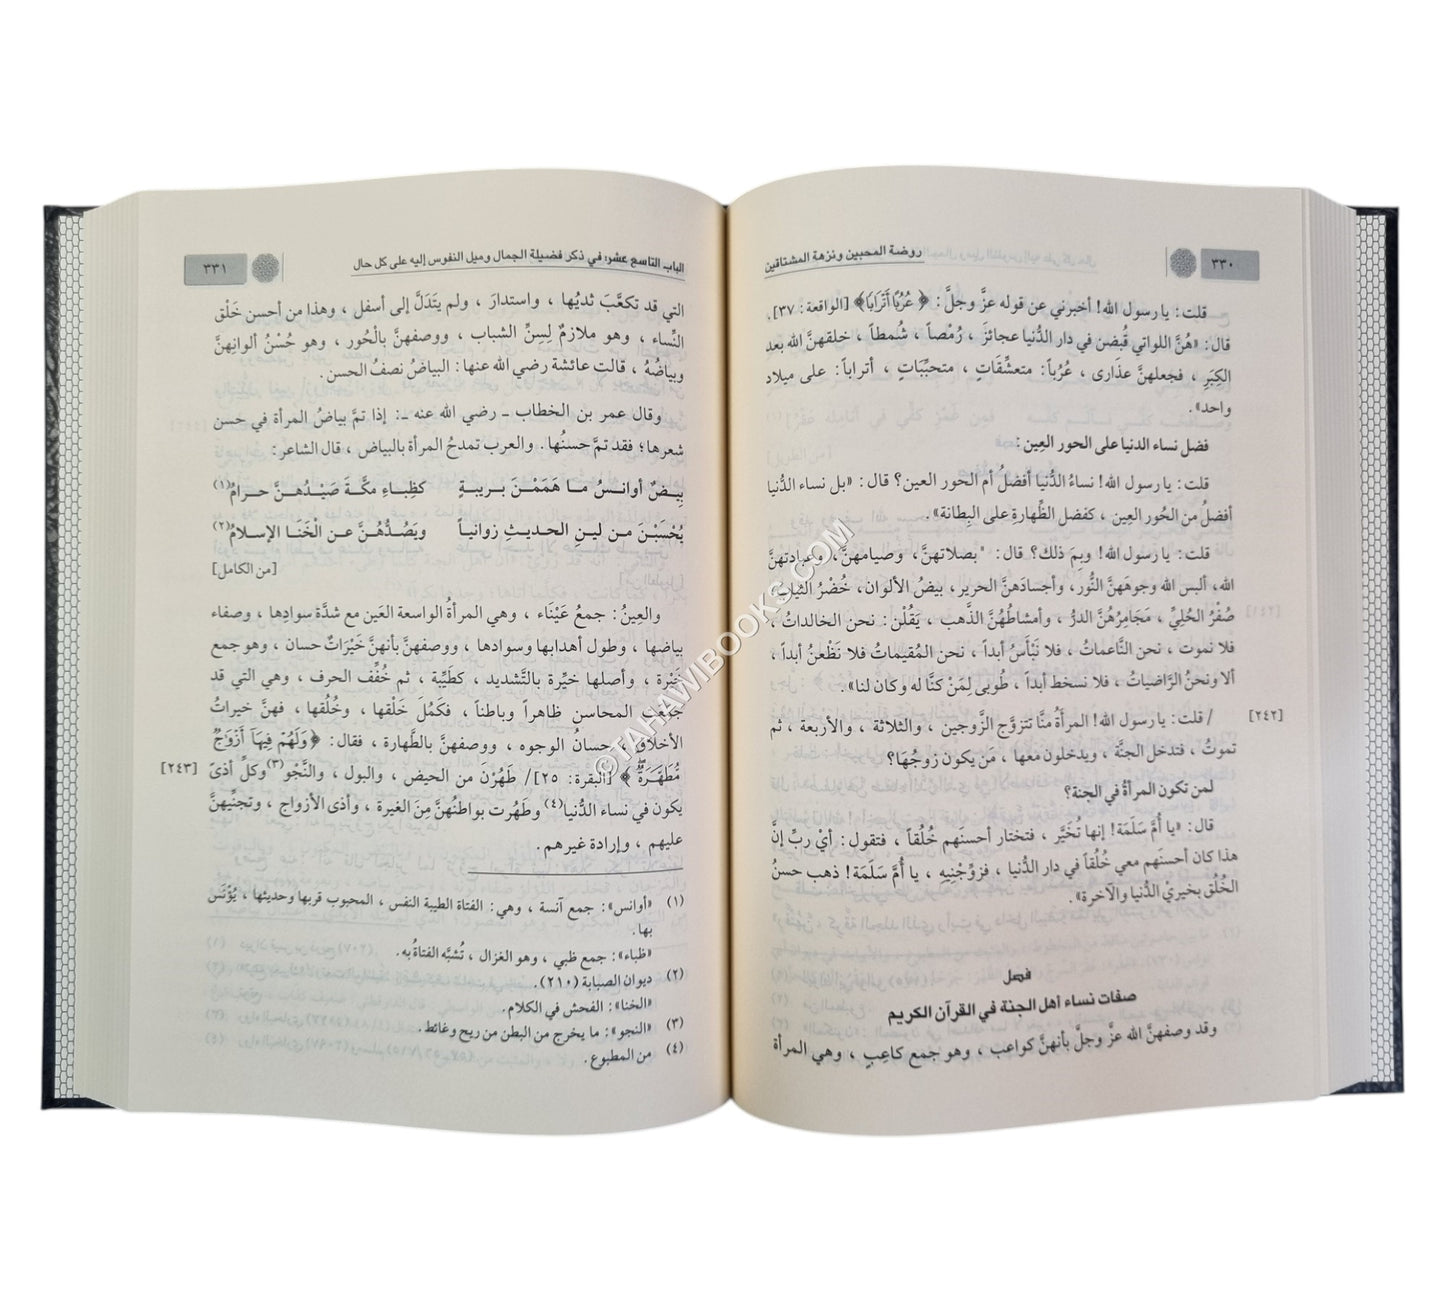 ٣٣٠
روضة المحبين ونزهة المشتاقين
قلت: يا رسول الله! أخبرني عن قوله عزَّ وجلَّ: ﴿ عُرُبًا أَتْرَابًا﴾ [الواقعة: ٣٧]،
قال: «هُنَّ اللواتي قُبضن في دار الدُّنيا عجائزَ، رُمْصاً، شُمطاً، خلقهنَّ الله بعد
الكِبَرِ، فجعلهنَّ عذارى، عُرُباً: متعشِّقات، متحبِّبَات، أتراباً: على ميلادٍ
واحد».
فضل نساء الدنيا على الحور العِين:
قلت: يا رسول الله! نساءُ الدُّنيا أفضلُ أم الحور العين؟ قال: «بل نساء الدُّنيا
أفضلُ من الحُور العِين، كفضل الظِّهارةِ على البِطانة».
قلت: يا رسول الله! وبِمَ ذلك؟ قال: "بصلاتهنَّ، وصيامهنَّ، وعبادتهنَّ
الله، ألبس الله وجوهَهنَّ النُّور، وأجسادَهنَّ الحرير، بيضُ الألوان، خُضْرُ الثياب،
صُفْرُ الحُليِّ، مَجَامِرُهُنَّ الدرُّ، وأمشاطُهُنَّ الذَّهب، يَقُلْن: نحن الخالداتُ،
فلا نموت، نحن النَّاعماتُ، فلا نَبْأَسُ أبداً، نحن المُقيماتُ فلا نَظْعنُ أبداً،
ألا ونحنُ الرَّاضياتُ، فلا نسخط أبداً، طُوبى لِمَنْ كنَّا له وكان لنا».
[٢٤٢] / قلت: يا رسول الله! المرأةُ منَّا تتزوَّج الزَّوجين، والثلاثة، والأربعة، ثم
تموتُ، فتدخل الجنَّة، ويدخلون معها، مَن يكون زوجُهَا؟
لمن تكون المرأةُ في الجنة؟
قال: «يا أُمَّ سَلَمَة! إنها تُخَيَّر، فتختار أحسنَهم خُلُقاً، فتقول: أيْ ربِّ إن
هذا كان أحسنَهم معي خُلُقاً في دار الدُّنيا، فزوِّجْنِيهِ، يا أُمَّ سَلَمَة! ذهب حسنُ
الخُلُق بخيريْ الدُّنيا والآخرة».
فصل
صفات نساء أهل الجنة في القرآن الكريم
وقد وصفهنَّ الله عزَّ وجلَّ بأنهنَّ كواعب، وهو جمع كاعِبٍ، وهي المرأة
الباب التاسع عشر: في ذكر فضيلة الجمال وميل النفوس إليه على كل حال
٣٣١
التي قد تكعَّبَ ثديُها، واستدارَ، ولم يتَدَلَّ إلى أسفل، وهذا من أحسن خَلْق
النِّساء، وهو ملازمٌ لِسِنِّ الشباب، ووصفهنَّ بالْحُور، وهو حُسْنُ ألوانِهنَّ
وبياضُهُ، قالت عائشة رضي الله عنها: البياضُ نصفُ الحسن.
وقال عمر بن الخطاب ـ رضي الله عنه ـ: إذا تمَّ بياضُ المرأة في حسن
شعرها؛ فقد تمَّ حسنُها. والعرب تمدحُ المرأة بالبياض، قال الشاعر:
بِيضٌ أوانسُ ما هَمَمْنَ بريبةٍ كظِباءِ مكَّةَ صَيْدُهنَّ حرامُ(١)
يُحْسَبْنَ من لينِ الحديثِ زوانياً ويَصُدُّهُنَّ عن الْخَنَا الإسلامُ(٢)
[من الكامل]
والعِينُ: جمعُ عَيْنَاء، وهي المرأةُ الواسعة العَين مع شدَّة سوادِها، وصفاء
بياضها، وطول أهدابها وسوادها، ووصفهنَّ بأنهنَّ خَيْرَاتٌ حسان، وهو جمع
خَيْرة، وأصلها خيِّرة بالتَّشديد، كطَيِّبة، ثم خُفِّف الحرف، وهي التي قد
جمعت المحاسن ظاهراً وباطناً، فكَمُلَ خَلْقها، وخُلُقها، فهنَّ خيراتُ
الأخلاق، حسانُ الوجوه، ووصفهنَّ بالطَّهارة، فقال: ﴿وَلَهُمْ فِيهَا أَزْوَاجٌ
مُّطَهَّرَةٌ﴾ [البقرة: ٢٥]/ طَهُرْنَ من الحيض، والبول، والنَّجْو(٣) وكلِّ أذىً [٢٤٣]
يكون في نساء الدُّنيا(٤) وطَهُرت بواطنُهنَّ مِنَ الغيرة، وأذى الأزواج، وتجنِّيهنَّ
عليهم، وإرادة غيرهم.
(١) «أوانس»: جمع آنسة، وهي: الفتاة الطيبة النفس، المحبوب قربها وحديثها، يُؤْنَس
بها.
«ظباء»: جمع ظبي، وهو الغزال، تُشبَّه الفتاةُ به.
(٢) ديوان الصبابة (٢١٠).
«الخنا»: الفحش في الكلام.
(٣) «النجو»: ما يخرج من البطن من ريح وغائط.
(٤) من المطبوع.
©TAHAWIBOOKS.COM